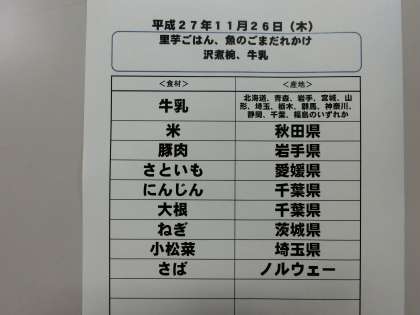 平成27年11月26日（木）
里芋ごはん、魚のごまだれかけ
沢煮椀、牛乳
＜食材＞ ＜産地＞
牛乳 北海道、青森、岩手、宮城、山形、埼玉、栃木、群馬、神奈川、静岡、千葉、福島のいずれか
米 秋田県
豚肉 岩手県
さといも 愛媛県
にんじん 千葉県
大根 千葉県
ねぎ 茨城県
小松菜 埼玉県
さば ノルウェー